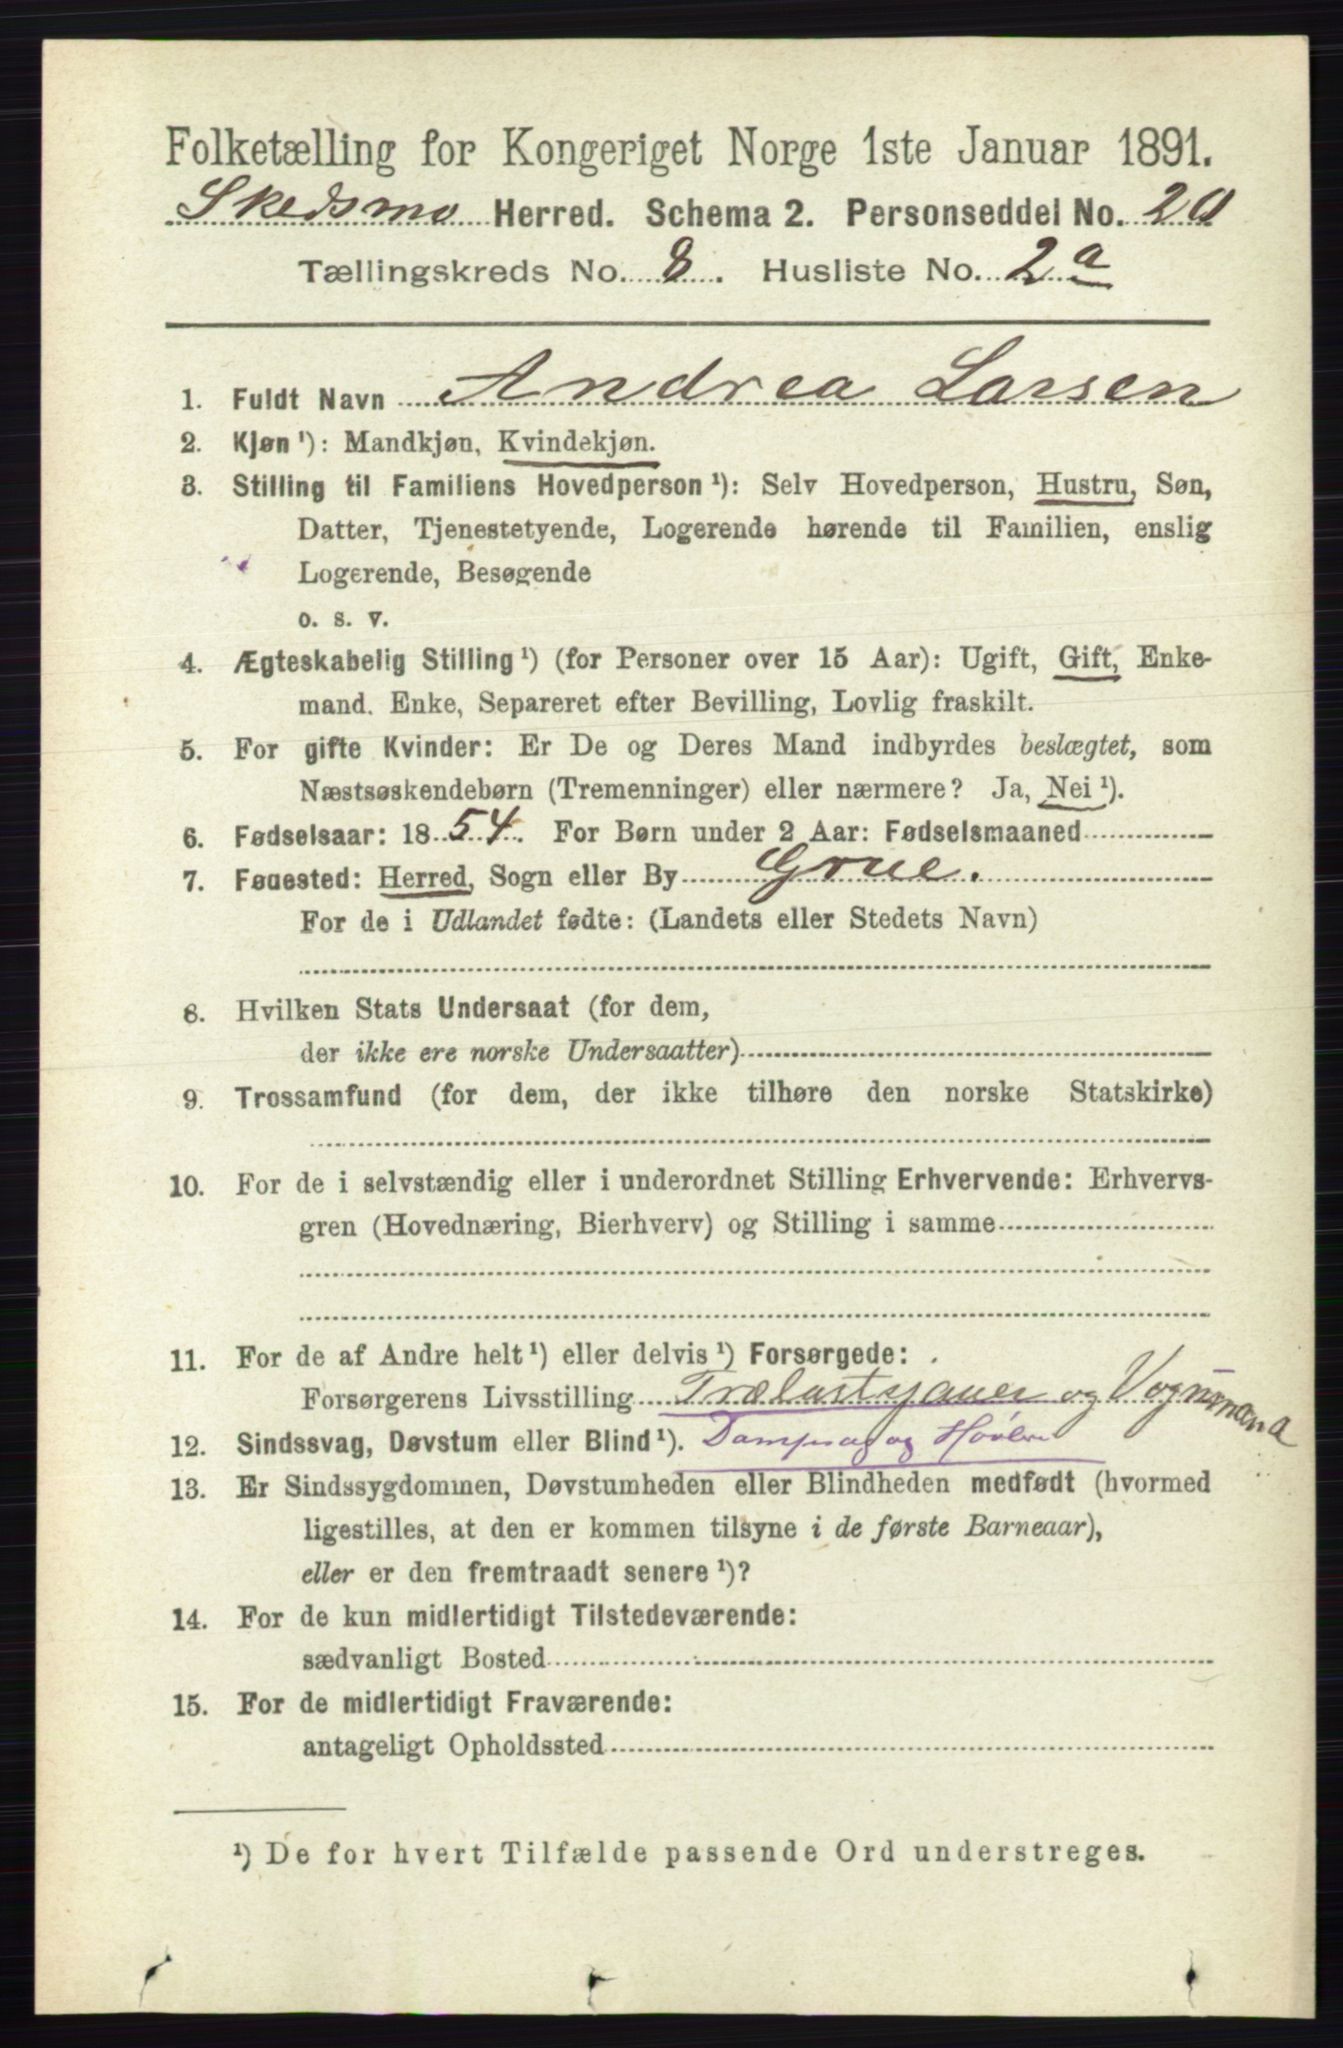 Folketælling for Kongeriget Norge 1ste Januar 1891.
Skedsmo Herred. Schema 2. Personseddel No. 20
Tællingskreds No. 8. Husliste No. 2a
1. Fuldt Navn Andrea Larsen
2. Kjøn¹): Mandkjøn, Kvindekjøn.
3. Stilling til Familiens Hovedperson¹): Selv Hovedperson, Hustru, Søn,
Datter, Tjenestetyende, Logerende hørende til Familien, enslig
Logerende, Besøgende
o. s. v.
4. Ægteskabelig Stilling¹) (for Personer over 15 Aar): Ugift, Gift, Enke-
mand. Enke, Separeret efter Bevilling, Lovlig fraskilt.
5. For gifte Kvinder: Er De og Deres Mand indbyrdes beslægtet, som
Næstsøskendebørn (Tremenninger) eller nærmere? Ja, Nei¹).
6. Fødselsaar: 1854. For Børn under 2 Aar: Fødselsmaaned
7. Føuested: Herred, Sogn eller By Grue.
For de i Udlandet fødte: (Landets eller Stedets Navn)
8. Hvilken Stats Undersaat (for dem,
der ikke ere norske Undersaatter)
9. Trossamfund (for dem, der ikke tilhøre den norske Statskirke)
10. For de i selvstændig eller i underordnet Stilling Erhvervende: Erhvervs-
gren (Hovednæring, Bierhverv) og Stilling i samme
11. For de af Andre helt¹) eller delvis¹) Forsørgede:
Forsørgerens Livsstilling Trælastsjauer og Vognmand
12. Sindssvag, Døvstum eller Blind¹). Dampsag og Høvleri
13. Er Sindssygdommen, Døvstumheden eller Blindheden medfødt (hvormed
ligestilles, at den er kommen tilsyne i de første Barneaar),
eller er den fremtraadt senere¹)?
14. For de kun midlertidigt Tilstedeværende:
sædvanligt Bosted
15. For de midlertidigt Fraværende:
antageligt Opholdssted
¹) De for hvert Tilfælde passende Ord understreges.